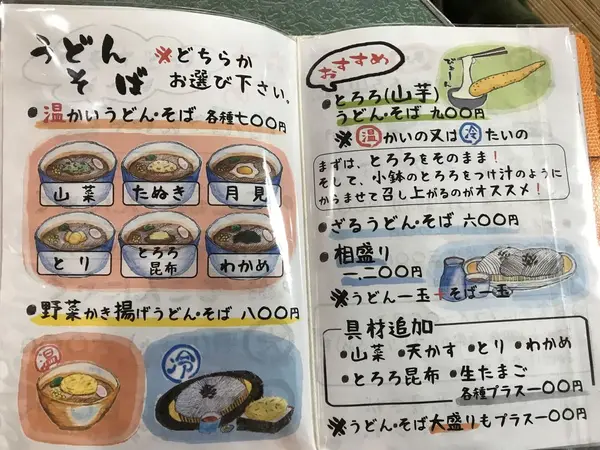 うどん
そば
※どちらか
お選び下さい。
・温かいうどん・そば 各種七〇〇円
山菜
たぬき
月見
とり
とろろ
昆布
わかめ
・野菜かき揚げうどん・そば 八〇〇円
温
冷
おすすめ
びょーん
・とろろ(山芋)
うどん・そば 九〇〇円
※温かいの又は冷たいの
まずは、とろろをそのまま!
そして、小鉢のとろろをつけ汁のように
からませて召し上がるのがオススメ!
・ざるうどん・そば 六〇〇円
・相盛り
一、二〇〇円
※うどん一玉+そば一玉
具材追加
・山菜 ・天かす ・とり ・わかめ
・とろろ昆布 ・生たまご
各種プラス一〇〇円
※うどん・そば大盛りもプラス一〇〇円